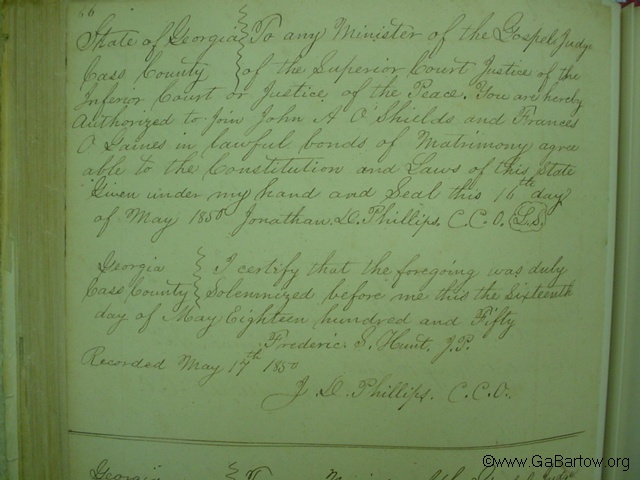 66
State of Georgia } To any Minister of the Gospel, Judge
Cass County } of the Superior Court Justice of the
Inferior Court or Justice of the Peace. You are hereby
Authorized to Join John A O'Shields and Frances
O Gaines in lawful bonds of Matrimony agree
able to the Constitution and Laws of this State
Given under my hand and Seal this 16th day
of May 1850 Jonathan. D. Phillips. C. C. O. L.S.
Georgia } I certify that the foregoing was duly
Cass County } Solemnized before me this the Sixteenth
day of May Eighteen hundred and Fifty
Frederic. S. Hunt. J.P.
Recorded May 17th 1850
J. D. Phillips. C.C.O.
Georgia
©www.GaBartow.org